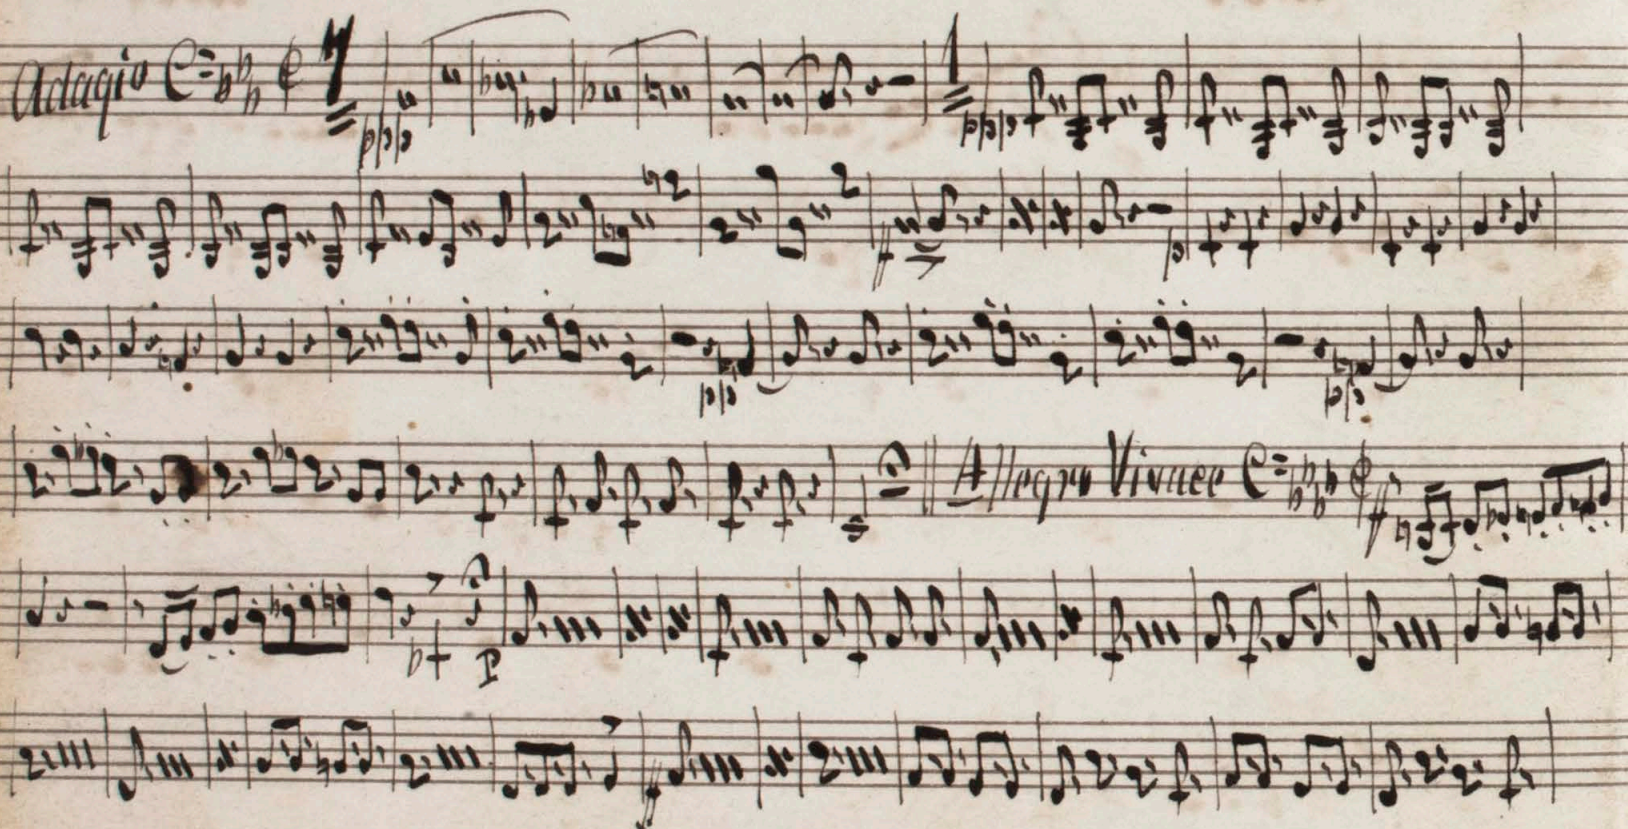 Adagio 7 ppp 1 ppp
ff p
pp pp
Allegro Vivace ff
p
ff